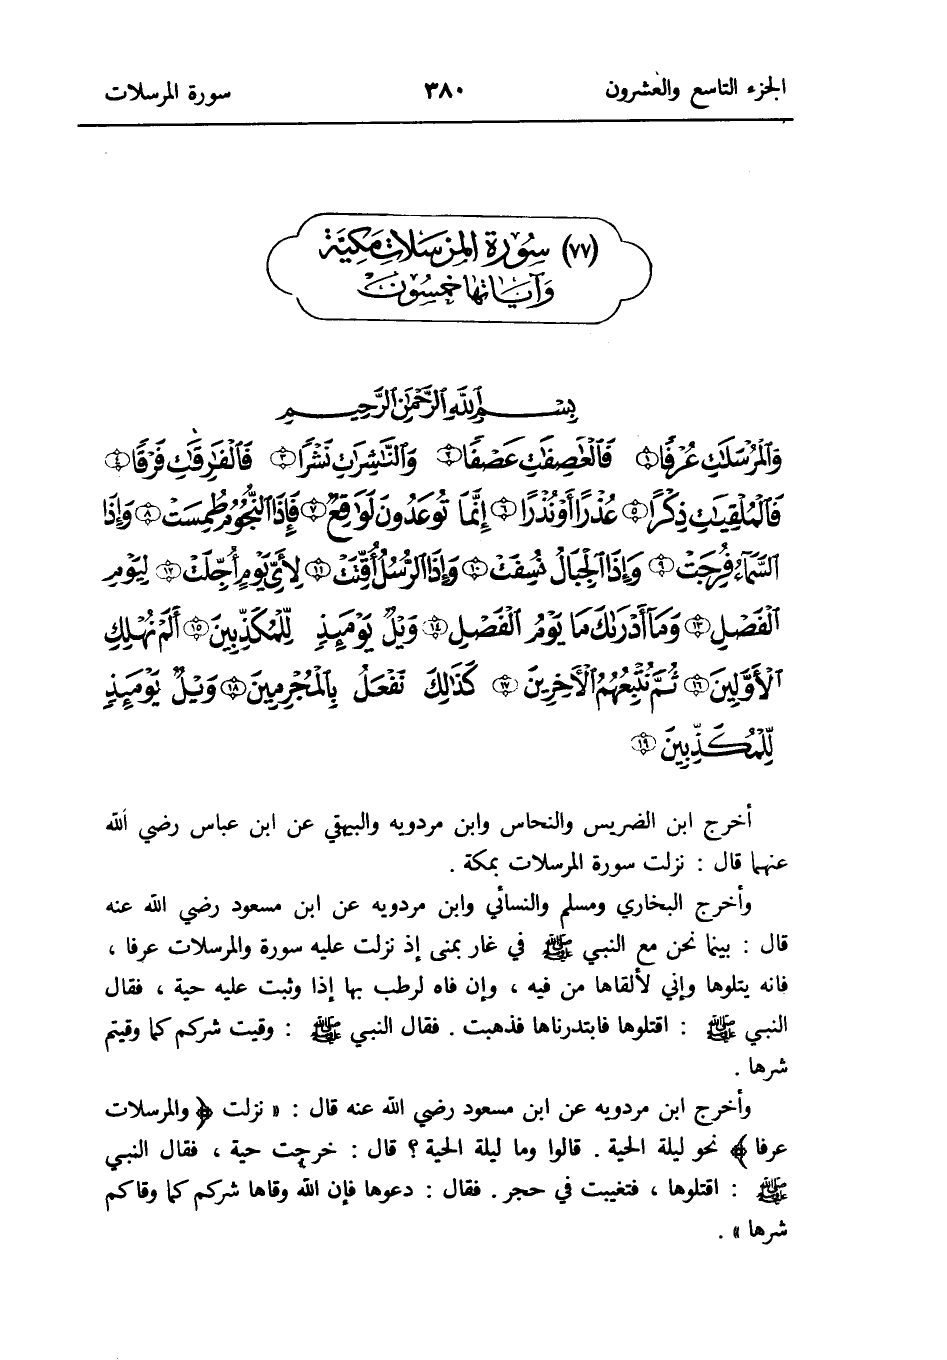 الجزء التاسع والعشرون ٣٨٠ سورة المرسلات
(٧٧) سُورَة المرسَلات مَكيَّة
وَآيَاتها خمسُون
بِسۡمِ ٱللَّهِ ٱلرَّحۡمَٰنِ ٱلرَّحِيمِ
وَٱلۡمُرۡسَلَٰتِ عُرۡفٗا ١ فَٱلۡعَٰصِفَٰتِ عَصۡفٗا ٢ وَٱلنَّٰشِرَٰتِ نَشۡرٗا ٣ فَٱلۡفَٰرِقَٰتِ فَرۡقٗا ٤
فَٱلۡمُلۡقِيَٰتِ ذِكۡرًا ٥ عُذۡرًا أَوۡ نُذۡرًا ٦ إِنَّمَا تُوعَدُونَ لَوَٰقِعٞ ٧ فَإِذَا ٱلنُّجُومُ طُمِسَتۡ ٨ وَإِذَا
ٱلسَّمَآءُ فُرِجَتۡ ٩ وَإِذَا ٱلۡجِبَالُ نُسِفَتۡ ١٠ وَإِذَا ٱلرُّسُلُ أُقِّتَتۡ ١١ لِأَيِّ يَوۡمٍ أُجِّلَتۡ ١٢ لِيَوۡمِ
ٱلۡفَصۡلِ ١٣ وَمَآ أَدۡرَىٰكَ مَا يَوۡمُ ٱلۡفَصۡلِ ١٤ وَيۡلٞ يَوۡمَئِذٖ لِّلۡمُكَذِّبِينَ ١٥ أَلَمۡ نُهۡلِكِ
ٱلۡأَوَّلِينَ ١٦ ثُمَّ نُتۡبِعُهُمُ ٱلۡأٓخِرِينَ ١٧ كَذَٰلِكَ نَفۡعَلُ بِٱلۡمُجۡرِمِينَ ١٨ وَيۡلٞ يَوۡمَئِذٖ
لِّلۡمُكَذِّبِينَ ١٩
أخرج ابن الضريس والنحاس وابن مردويه والبيهقي عن ابن عباس رضي الله
عنهما قال : نزلت سورة المرسلات بمكة .
وأخرج البخاري ومسلم والنسائي وابن مردويه عن ابن مسعود رضي الله عنه
قال : بينما نحن مع النبي ﷺ في غار بمنى إذ نزلت عليه سورة والمرسلات عرفا ،
فانه يتلوها وإني لألقاها من فيه ، وإن فاه لرطب بها إذا وثبت عليه حية ، فقال
النبي ﷺ : اقتلوها فابتدرناها فذهبت . فقال النبي ﷺ : وقيت شركم كما وقيتم
شرها .
وأخرج ابن مردويه عن ابن مسعود رضي الله عنه قال : « نزلت ﴿ والمرسلات
عرفا ﴾ نحو ليلة الحية . قالوا وما ليلة الحية ؟ قال : خرجت حية ، فقال النبي
ﷺ : اقتلوها ، فتغيبت في حجر . فقال : دعوها فإن الله وقاها شركم كما وقاكم
شرها » .